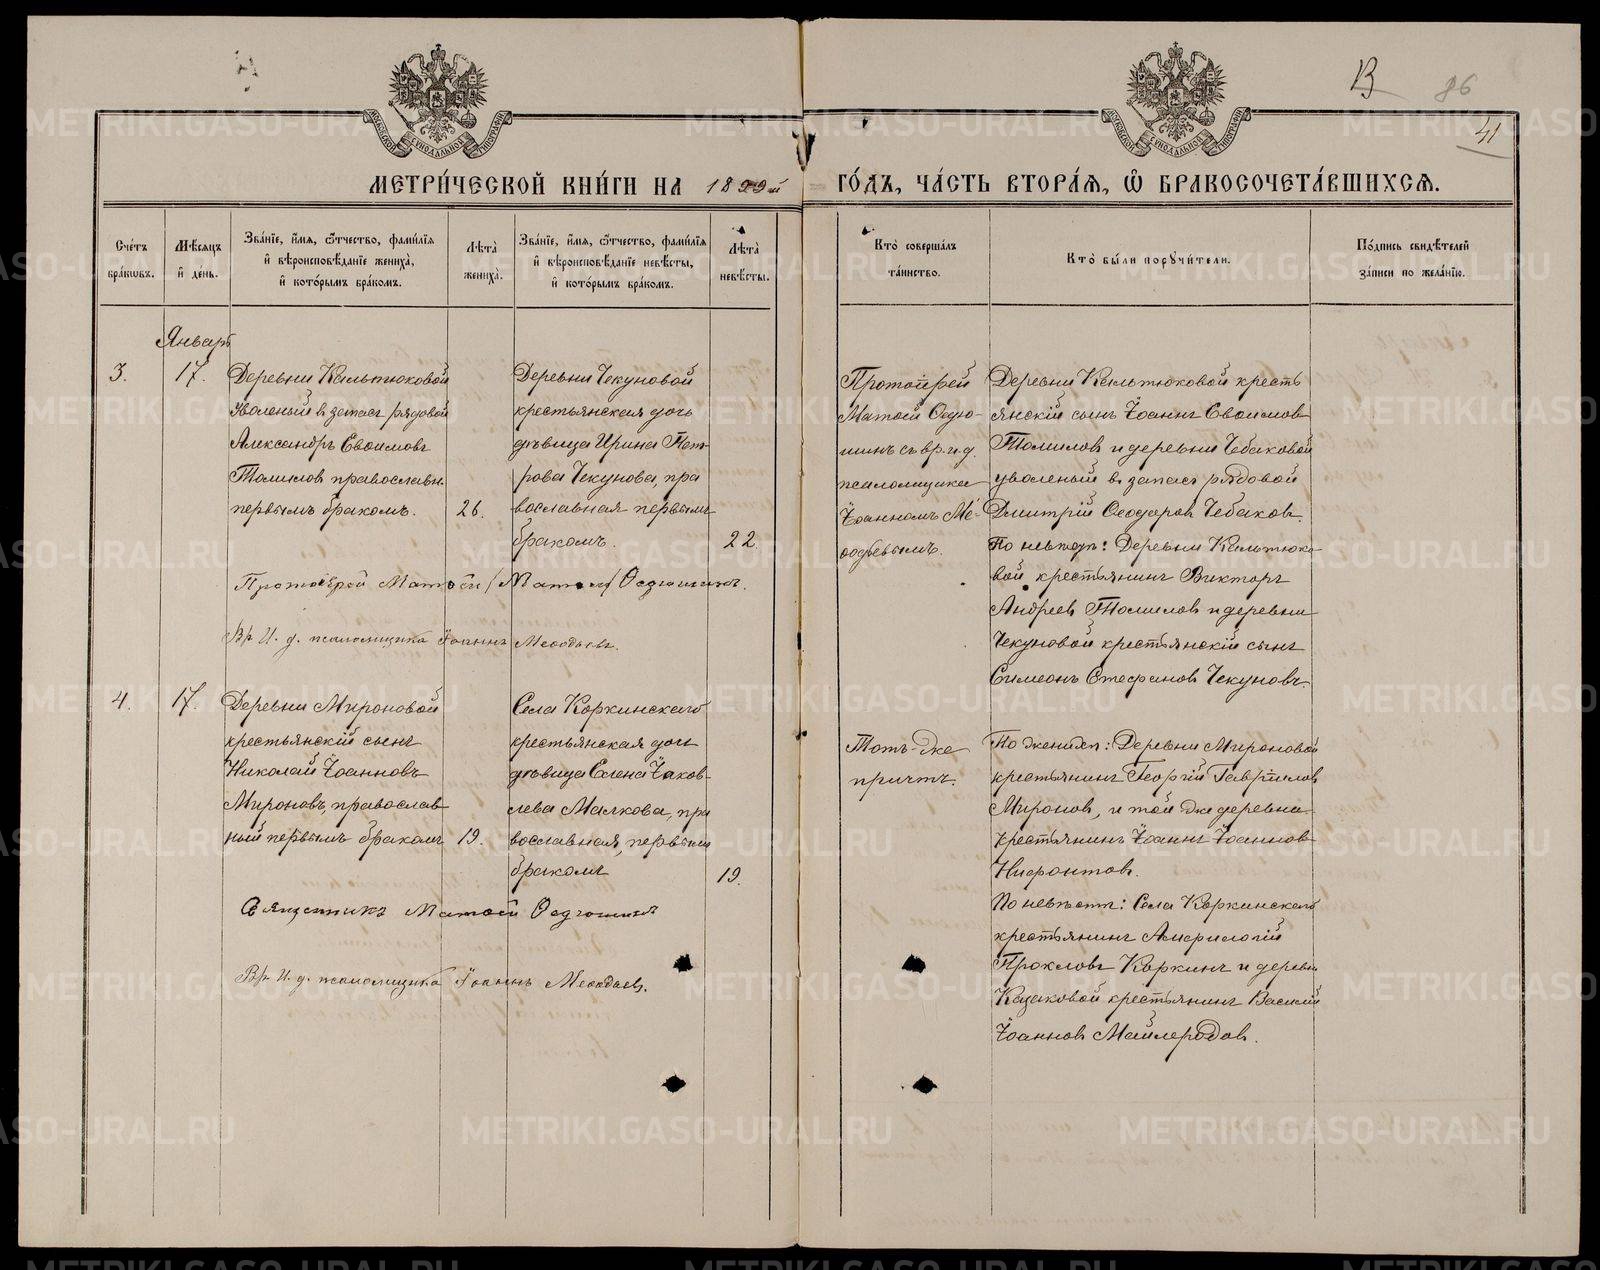 В
86
41
МЕТРИ́ЧЕСКОЙ КНИ́ГИ НА 1899й ГО́ДЪ, ЧА́СТЬ ВТОРА́Ѧ, Ѽ БРАКОСОЧЕТА́ВШИХСѦ.
Сче́тъ бра́кωвъ.
Мѣ́сяцъ и де́нь.
Зва́нїе, и́мѧ, ѻ҆́тчество, фами́лїѧ и҆ вѣроисповѣ́данїе жениха̀, и҆ кото́рымъ бра́комъ.
Лѣ́та жениха̀.
Зва́нїе, и́мѧ, ѻ҆́тчество, фами́лїѧ и҆ вѣроисповѣ́данїе невѣ́сты, и҆ кото́рымъ бра́комъ.
Лѣ́та невѣ́сты.
Кто̀ соверша́лъ та́инство.
Кто̀ бы́ли порꙋчи́тели.
По́дпись свидѣ́телей за́писи по жела́нїю.
Январь
3.
17.
Деревни Кальтюковой
Уволеный в запасъ рядовой
Александръ Евѳимовъ
Томиловъ православн.
первымъ бракомъ.
26.
Деревни Чекуновой
крестьянская дочь
дѣвица Ирина Пет-
рова Чекунова, пра
вославная первымъ
бракомъ.
22.
Протоіерей
Матѳей Ѳедю-
шинъ съ вр. и. д.
псаломщика
Іоанномъ Ме-
ѳодьевымъ.
Деревни Кальтюковой кресть
янскій сынъ Іоаннъ Евѳимовъ
Томиловъ и деревни Чебаковой
уволеный в запасъ рядовой
Дмитрій Ѳеодоровъ Чебаковъ.
По невѣстѣ: Деревни Кальтюко
вой крестьянинъ Викторъ
Андреевъ Томиловъ и деревни
Чекуновой крестьянскій сынъ
Симеонъ Стефановъ Чекуновъ.
Протоіерей Матѳей /Матѳей/ Ѳедюшинъ.
Вр. И. д. псаломщика Іоаннъ Меѳодьевъ.
4.
17.
Деревни Мироновой
крестьянскій сынъ
Николай Іоанновъ
Мироновъ, православ
ный первымъ бракомъ
19.
Села Коркинскаго
крестьянская дочь
дѣвица Елена Іаков-
лева Малкова, пра
вославная, первымъ
бракомъ
19.
Тотъ-же
причтъ.
По женихѣ: Деревни Мироновой
крестьянинъ Георгій Гавріиловъ
Мироновъ, и той же деревни
крестьянинъ Іоаннъ Іоанновъ
Нифонтовъ.
По невѣстѣ: Села Коркинскаго
крестьянинъ Амфилогій
Прокловъ Коркинъ и деревни
Казаковой крестьянинъ Василій
Іоанновъ Майлеродовъ.
Священникъ Матѳей Ѳедюшинъ
Вр. И. д. псаломщика Іоаннъ Меѳодьевъ.
METRIKI.GASO-URAL.RU